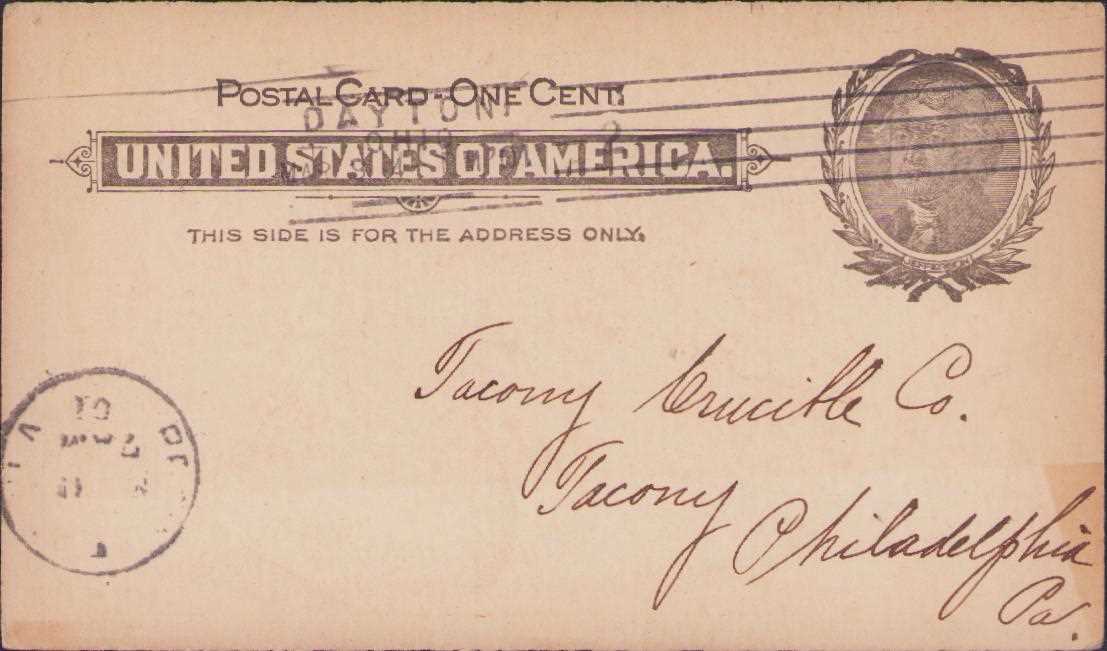 POSTAL CARD - ONE CENT.
DAYTON,
OHIO
UNITED STATES OF AMERICA.
THIS SIDE IS FOR THE ADDRESS ONLY.
JEFFERSON
Tacony Crucible Co.
Tacony
Philadelphia
Pa.